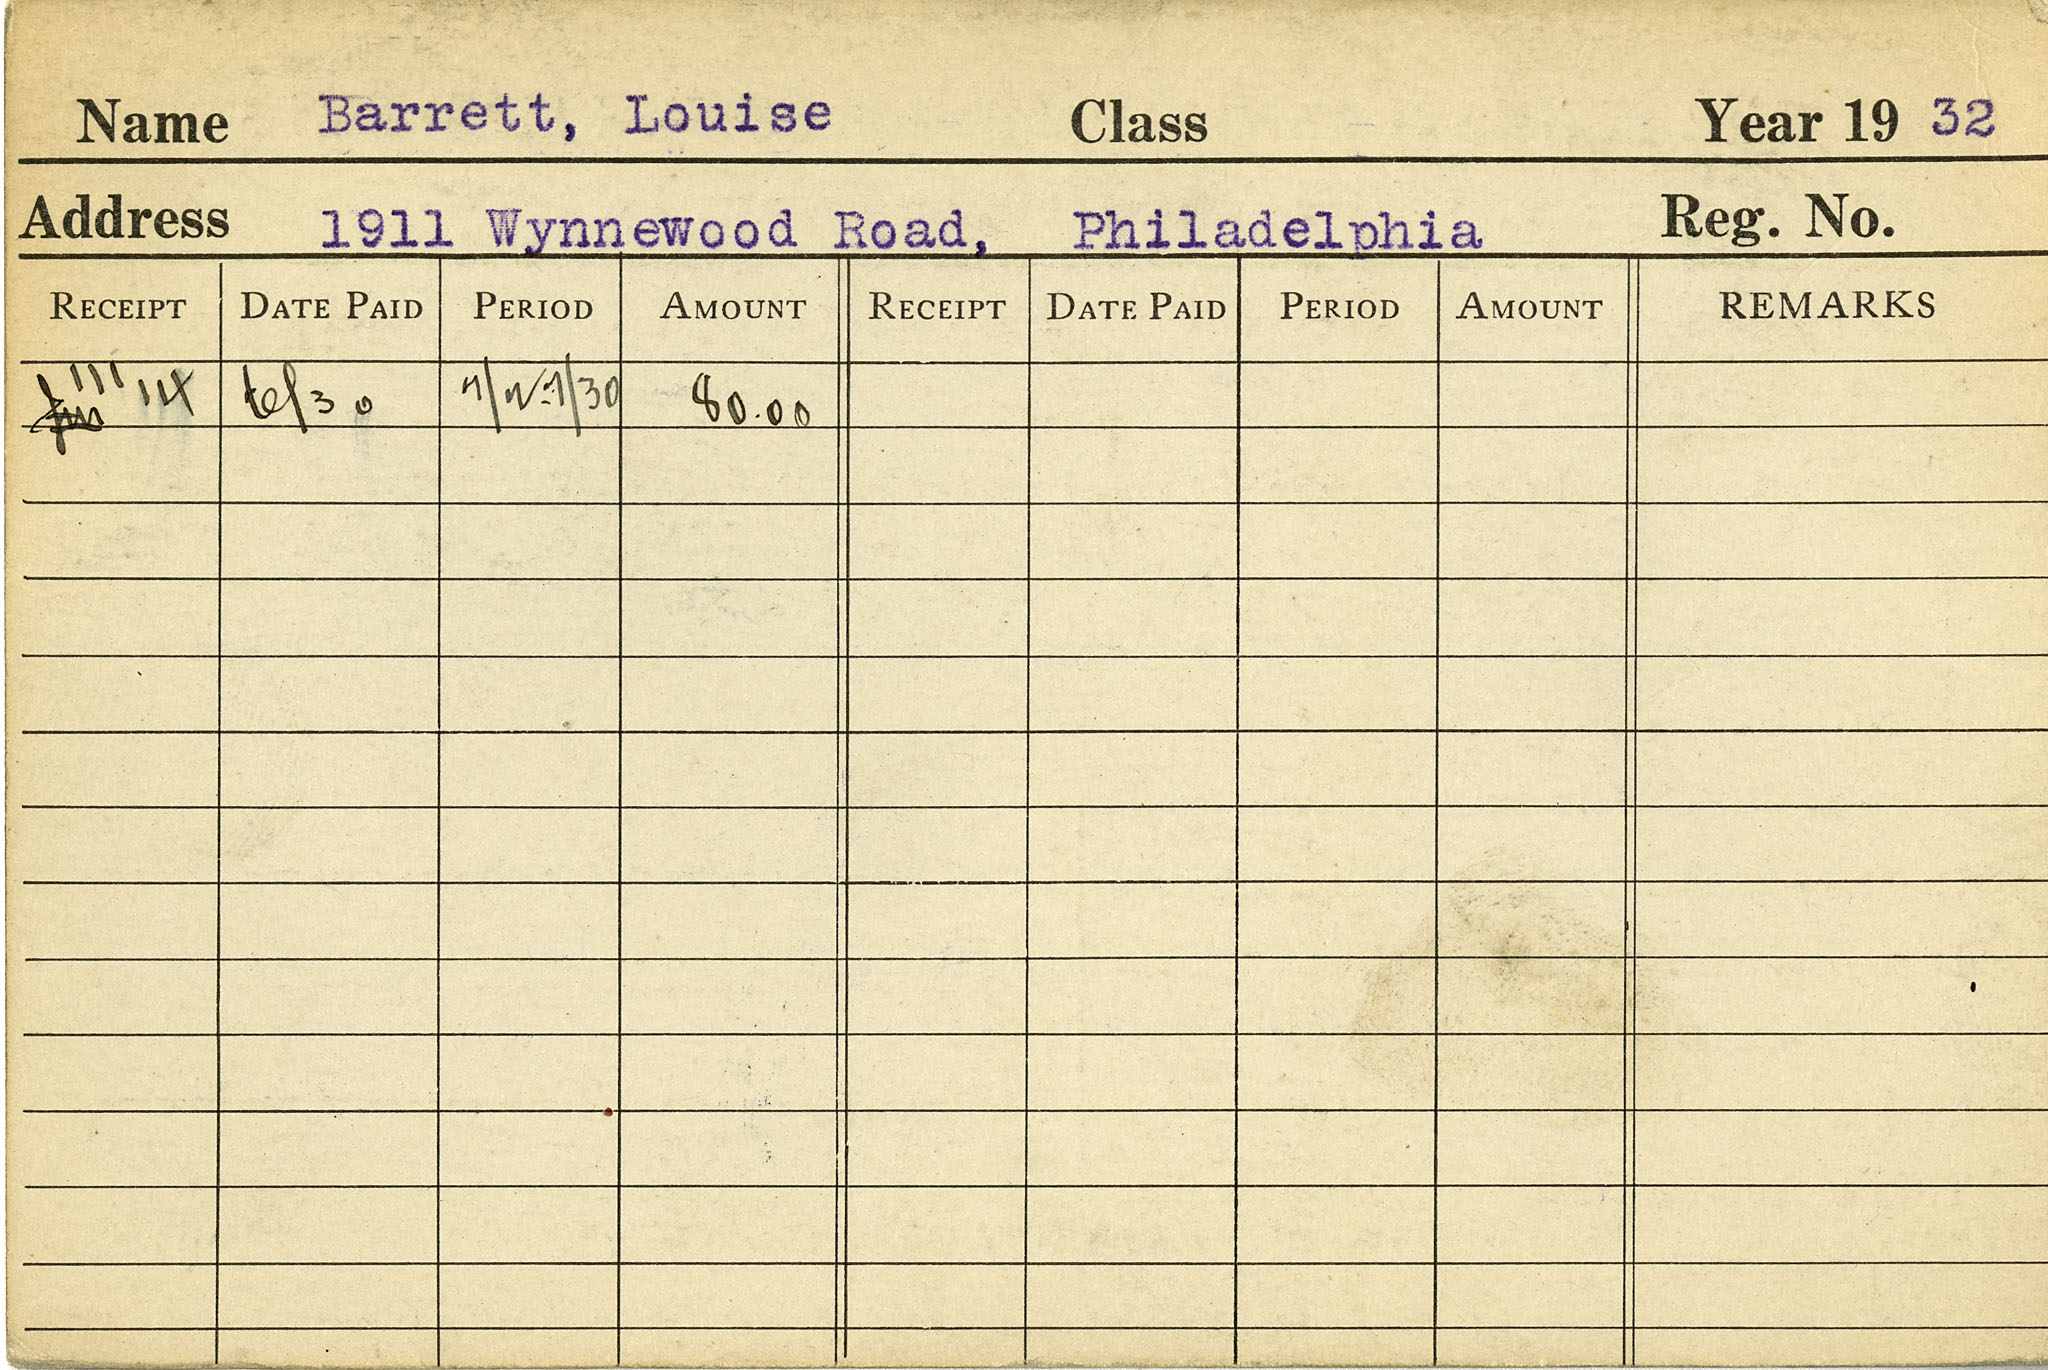 Name Barrett, Louise Class Year 19 32
Address 1911 Wynnewood Road, Philadelphia Reg. No.
RECEIPT DATE PAID PERIOD AMOUNT RECEIPT DATE PAID PERIOD AMOUNT REMARKS
80.00